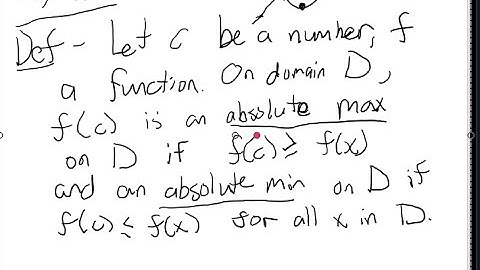 Def - Let c be a number, f
a function. On domain D,
f(c) is an absolute max
on D if f(c) ≥ f(x)
and an absolute min on D if
f(c) ≤ f(x) for all x in D.